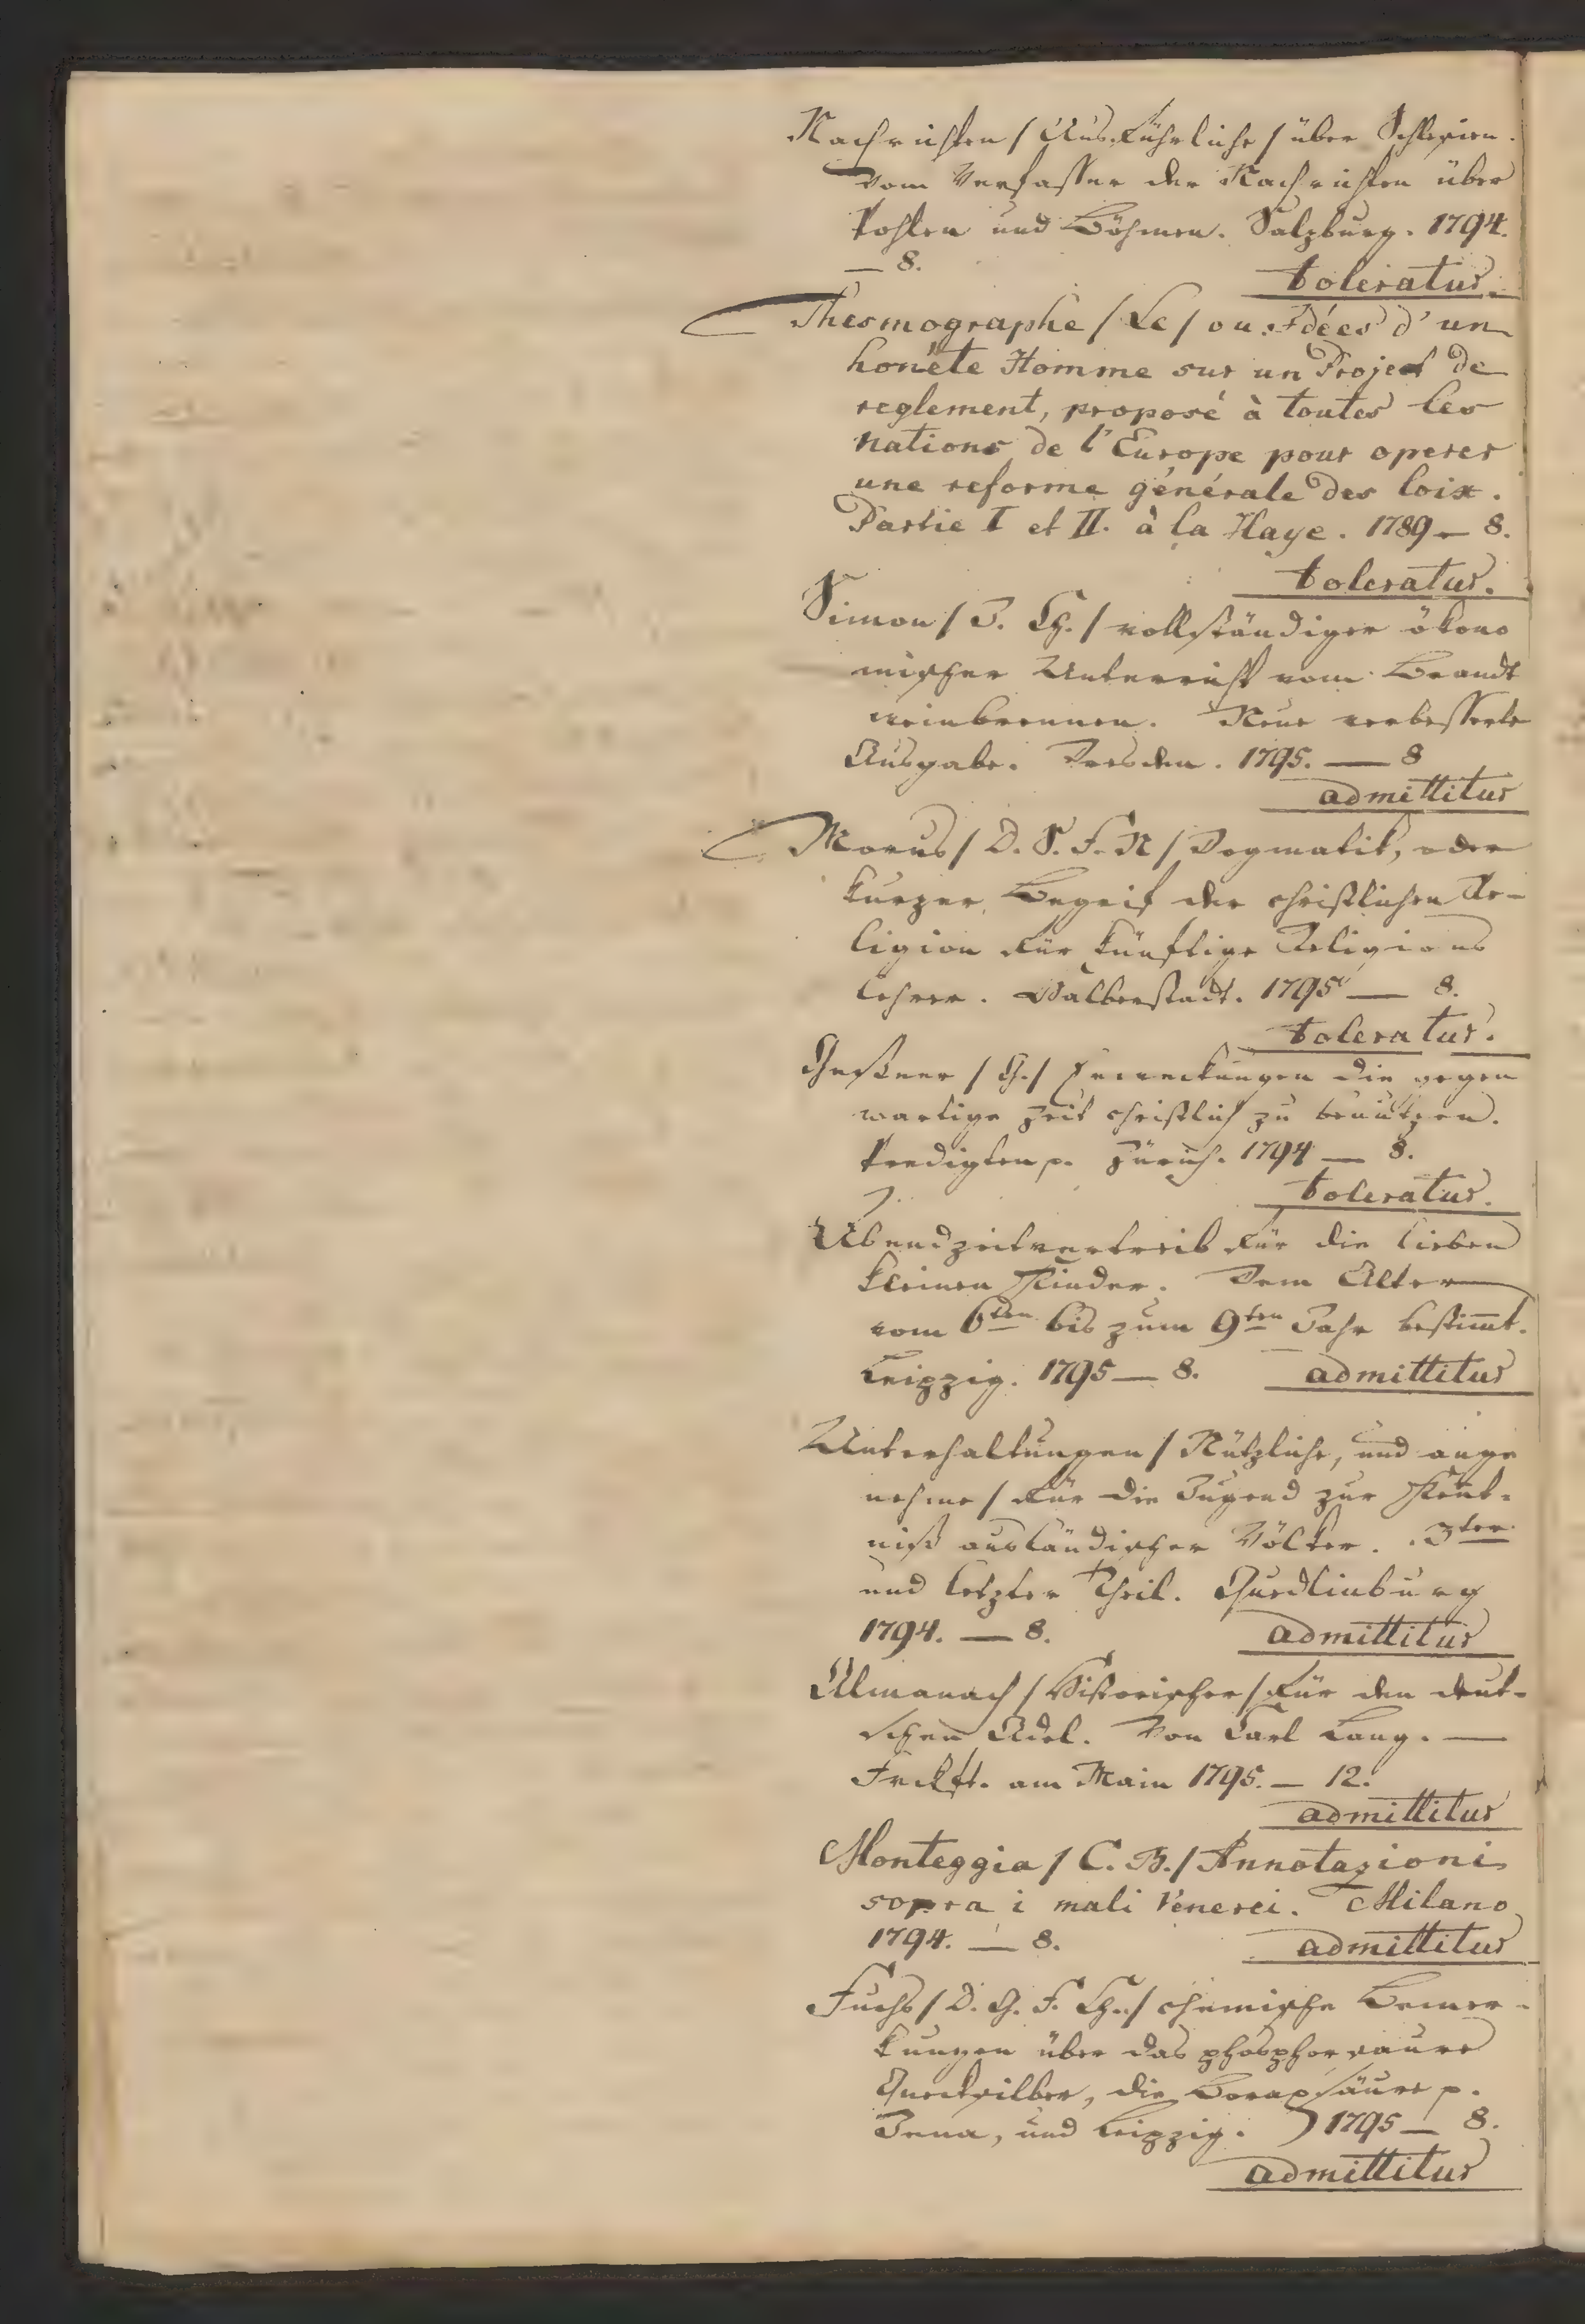 Nachrichten / Ausführliche / über Schlesien.
vom Verfasser der Nachrichten über
Pohlen und Böhmen. Salzburg. 1794.
— 8.
toleratur.
Thesmographe / Le / ou Idées d'un
honéte Homme sur un Project de
reglement, proposé à toutes les
nations de l'Europe pour operer
une reforme générale des loix.
Partie I et II. à la Haye. 1789 — 8.
toleratur.
Simon / J. Ch. / vollständiger ökono
mischer Unterricht vom Brandt
weinbrennen. Neue verbesserte
Ausgabe. Dresden. 1795. — 8
admittitur
Morus / D. S. F. N / Dogmatik, oder
kurzer Begrif der christlichen Re-
ligion für künftige Religions
lehrer. Halberstadt. 1795 — 8.
toleratur.
Geßner / G. / Erweckungen die gegen
wartige Zeit christlich zu benützen.
Predigten p. Zürich. 1794 — 8.
toleratur.
Abendzeitvertreib für die lieben
kleinen Kinder. Dem Alter
vom 6ten bis zum 9ten Jahr bestim̄t.
Leipzig. 1795 — 8. admittitur
Unterhaltungen / Nützliche, und ange
nehme / für die Jugend zur Kent-
niß ausländischer Völker. 3ter
und letzter Theil. Quedlinburg
1794. — 8. admittitur
Almanach / Historischer / für den deut-
schen Adel. Von Carl Lang. —
Frckft. am Main 1795. — 12.
admittitur
Monteggia / C. B. / Annotazioni
sopra i mali Venerei. Milano
1794. — 8. admittitur
Fuchs / D. G. F. Ch. / chemische Bemer-
kungen über das phosphorsaure
Quecksilber, die Boraxsäure p.
Jena, und Leipzig. 1795 — 8.
admittitur